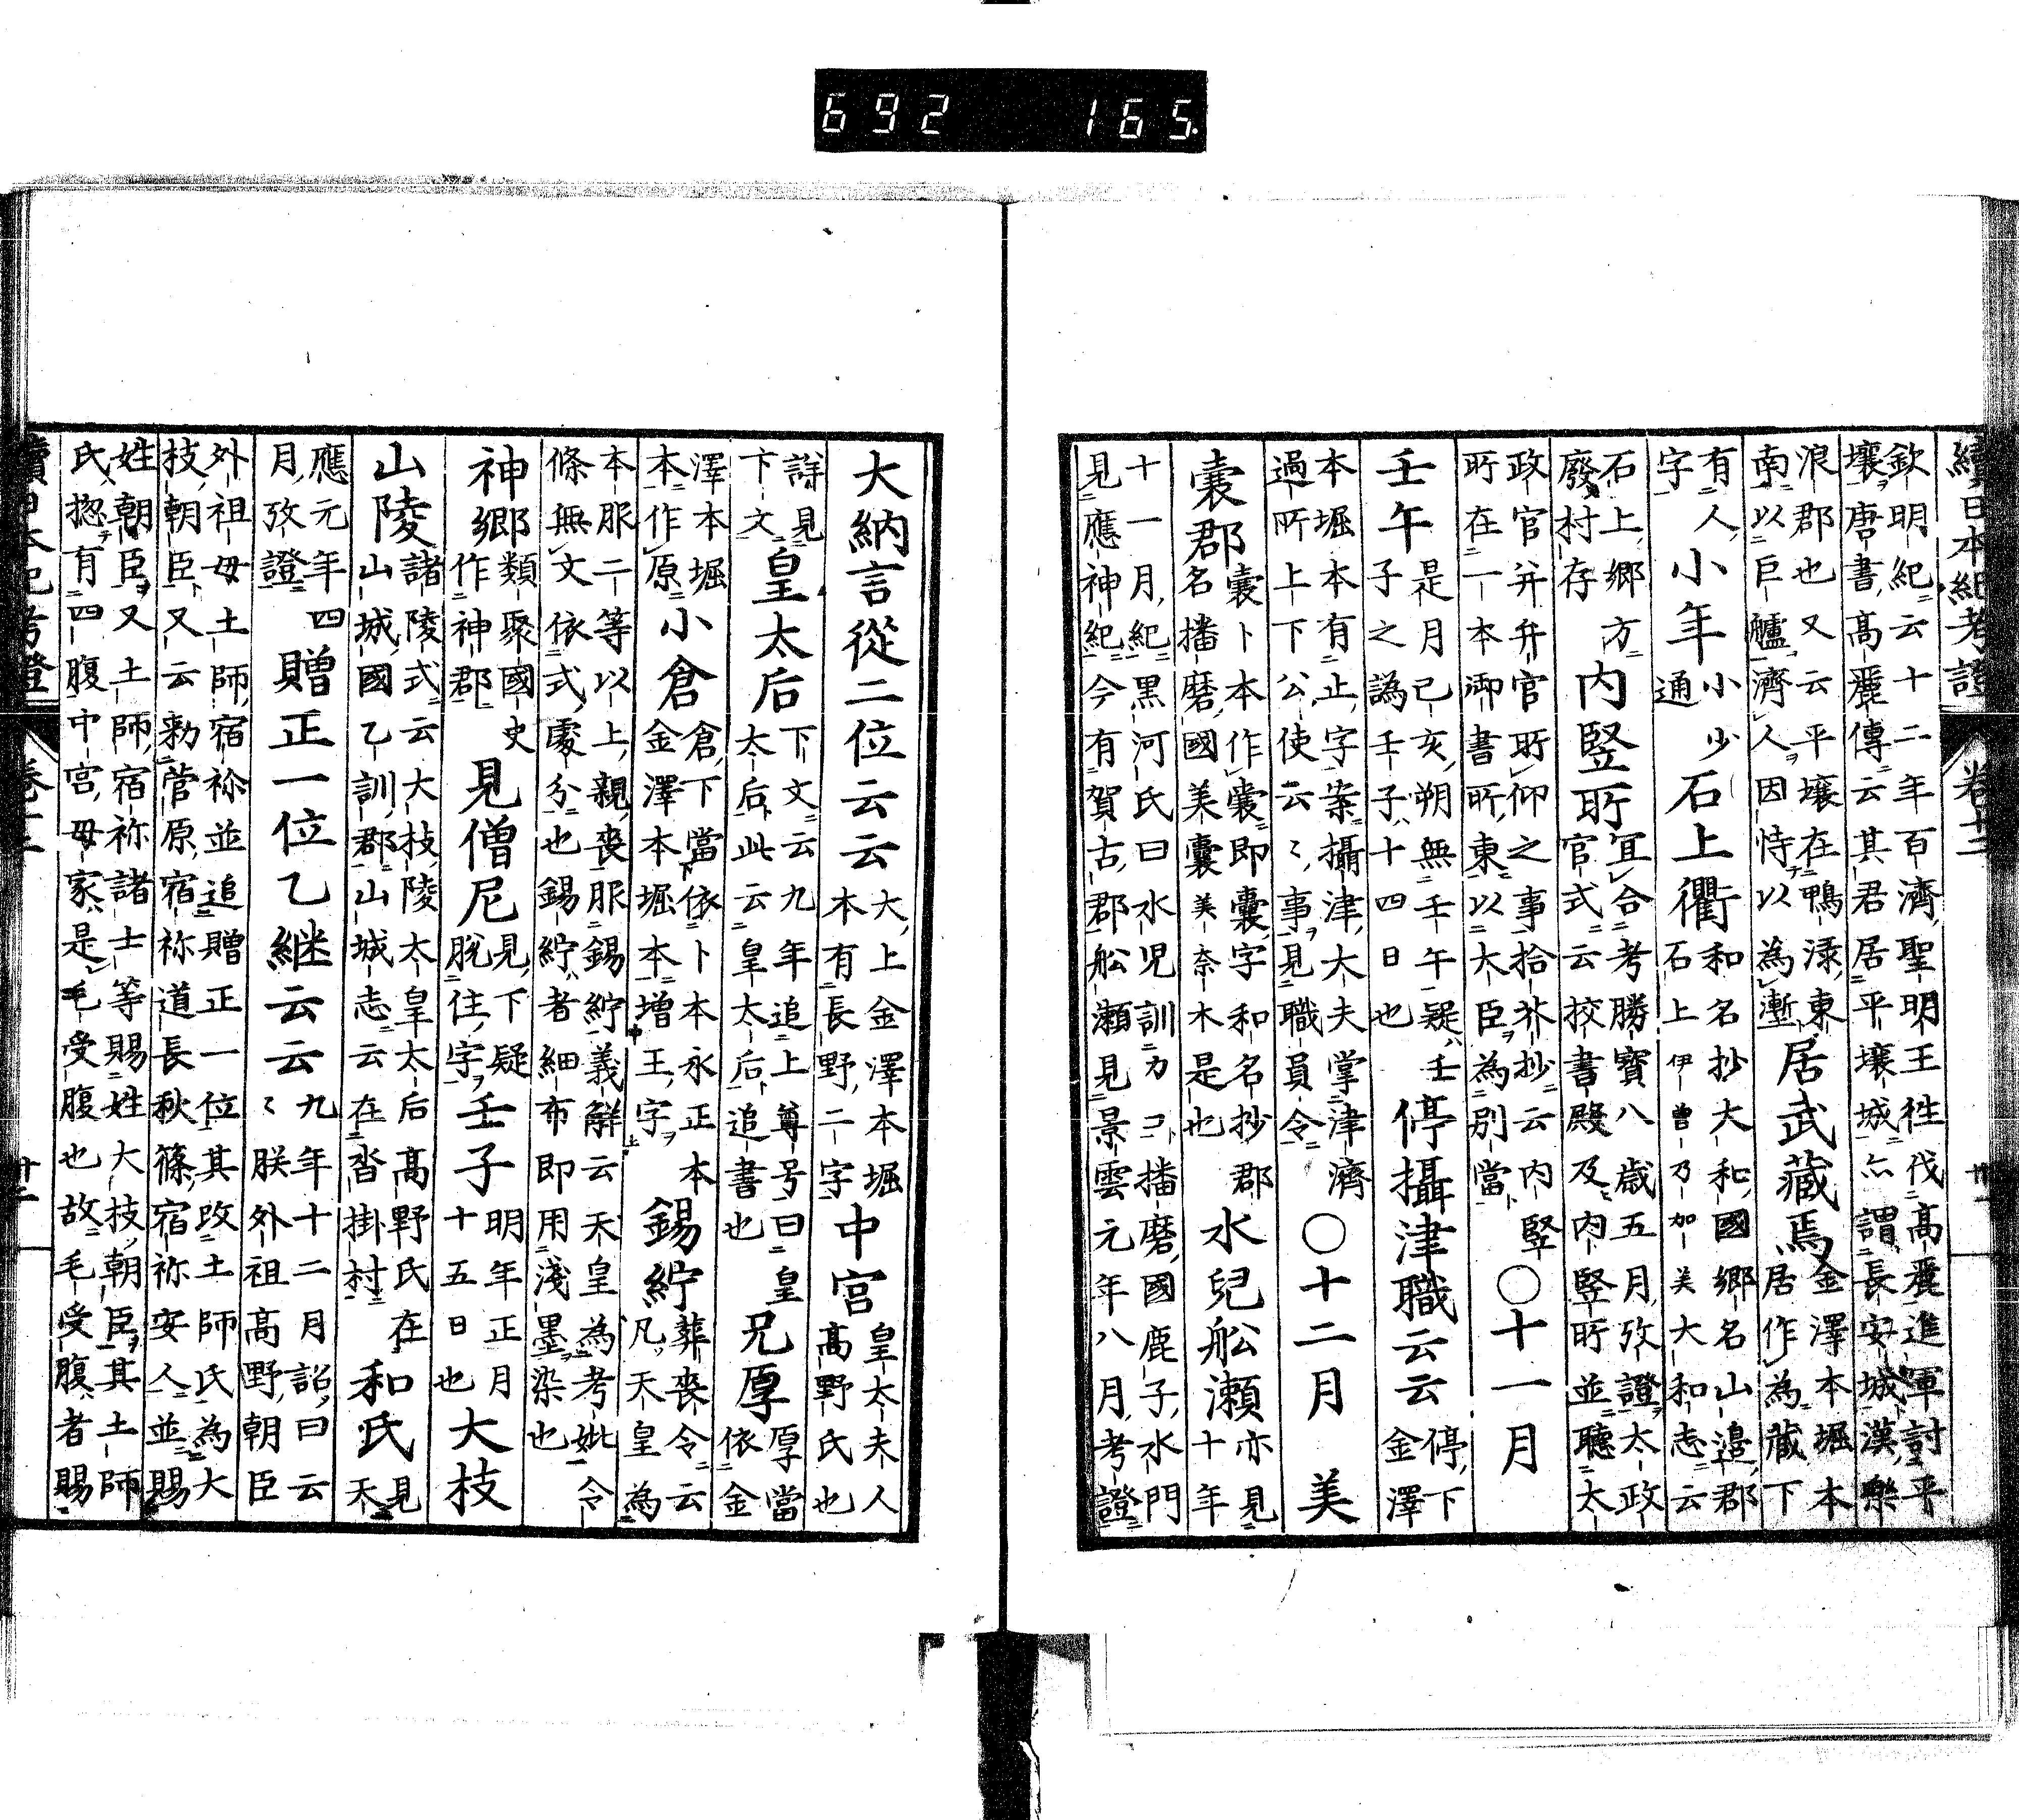 692 165.
續日本紀考證 卷十二 廿一
欽明紀云十二年百濟聖明王往伐高麗進軍討平
壤唐書高麗傳云其君居平壤城亦謂長安城漢樂
浪郡也又云平壤在鴨淥東
南以巨艫濟人因恃以為漸
居武藏焉
金澤本堀本
居作為藏下
有人
字
小年
小少
通
石上衢
和名抄大和國鄉名山邊郡
石上伊曾乃加美大和志云
石上鄉方
廢村存
内竪所
宜合考勝寶八歲五月攷證太政
官式云挍書殿及内竪所並聽太
政官幷弁官所仰之事拾芥抄云内竪
所在一本御書所東以大臣為別當
〇十一月
壬午
是月己亥朔無壬午疑壬
子之譌壬子十四日也
停攝津職云云
停下
金澤
本堀本有止字案攝津大夫掌津濟
過所上下公使云〻事見職員令
〇十二月
美
囊郡
囊卜本作嚢即囊字和名抄郡
名播磨國美囊美奈木是也
水兒舩瀬
亦見
十年
十一月紀黒河氏曰水児訓カコ播磨國鹿子水門
見應神紀今有賀古郡舩瀬見景雲元年八月考證
大納言從二位云云
大上金澤本堀
本有長野二字
中宮
皇太夫人
高野氏也
詳見
下文
皇太后
下文云九年追上尊号曰皇
太后此云皇太后追書也
兄厚
厚當
依金
澤本堀
本作原
小倉
倉下當依卜本永正本
金澤本堀本增王字
錫紵
葬喪令云
凡天皇為
本服二等以上親喪服錫紵義解云天皇為考妣令
條無文依式處分也錫紵者細布即用淺墨染也
神鄉
類聚國史
作神郡
見僧尼
見下疑
脫住字
壬子
明年正月
十五日也
大枝
山陵
諸陵式云大枝陵太皇太后高野氏在
山城國乙訓郡山城志云在沓掛村
和氏
見
天
應元年四
月攷證
贈正一位乙継云云
九年十二月詔曰云
〻朕外祖高野朝臣
外祖母土師宿祢並追贈正一位其改土師氏為大
枝朝臣又云勅菅原宿祢道長秋篠宿祢安人並賜
姓朝臣又土師宿祢諸士等賜姓大枝朝臣其土師
氏惣有四腹中宮母家是毛受腹也故毛受腹者賜
續日本紀考證 卷十二 廿二